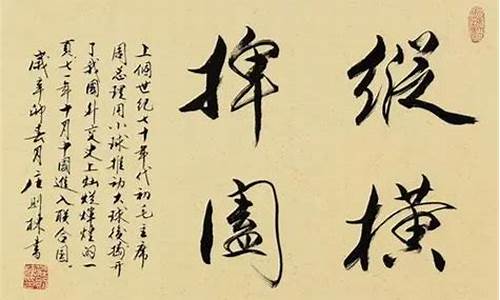 縱橫
捭闔
上個世纪七十年代初毛主席
周总理用小球推动大球後揭开
了我國外交史上灿爛煇煌的一
頁七一年十月中國進入联合国
歲辛卯春月庄則棟書